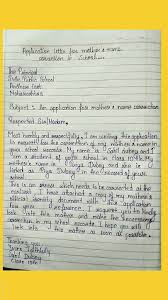 Application letter for mother's name
correction in School
The Principal
Delhi Public School
Andheri East
Maharashtra
Subject: An application for mother's name correction
Respected Sir/Madam,
Most humbly and respectfully, I am writing this application
to request for the correction of my mother's name in
your school records. My name is Sahil Dubey and I
am a student of your school in class
mother's name is Pooja Dubey and she is
listed as Priya Dubey in the record of your
This is an error which needs to be corrected at the
I have attached a copy of my mother's
official identity document with this application
for your reference. I request you to kindly
look into this matter and make the necessary
correction in the school records. I hope you will
look into this matter as soon as possible.
Thanking you
Yours
Sahil Dubey
Class